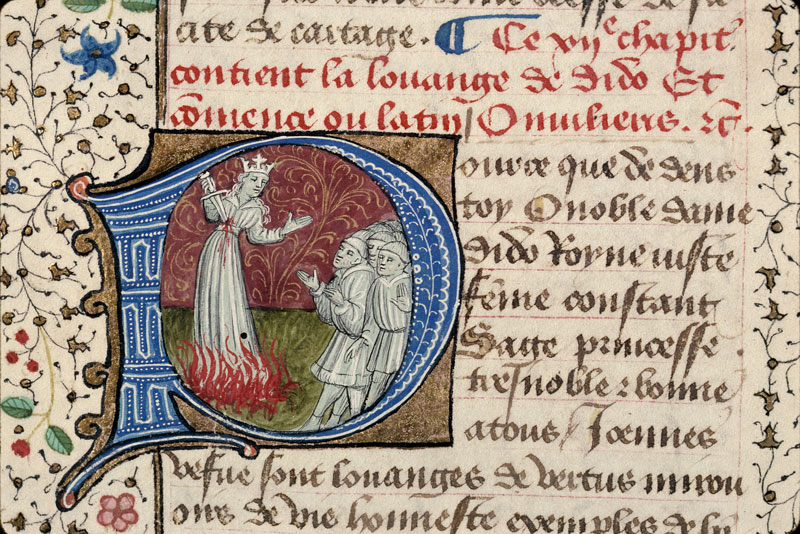 cite de cartage. ¶ Ce xije chapit'
contient la louange de dido Et
cōmence ou latin / O mulieris. ⁊c̄.
Pource que de dens
toy O noble dame
dido Royne iuste
fēme constant
Sage princesse
tres noble ⁊ bonne
a tous / Joennes
vefue sont louanges de vertus mirou
ours de vie honneste exemples de